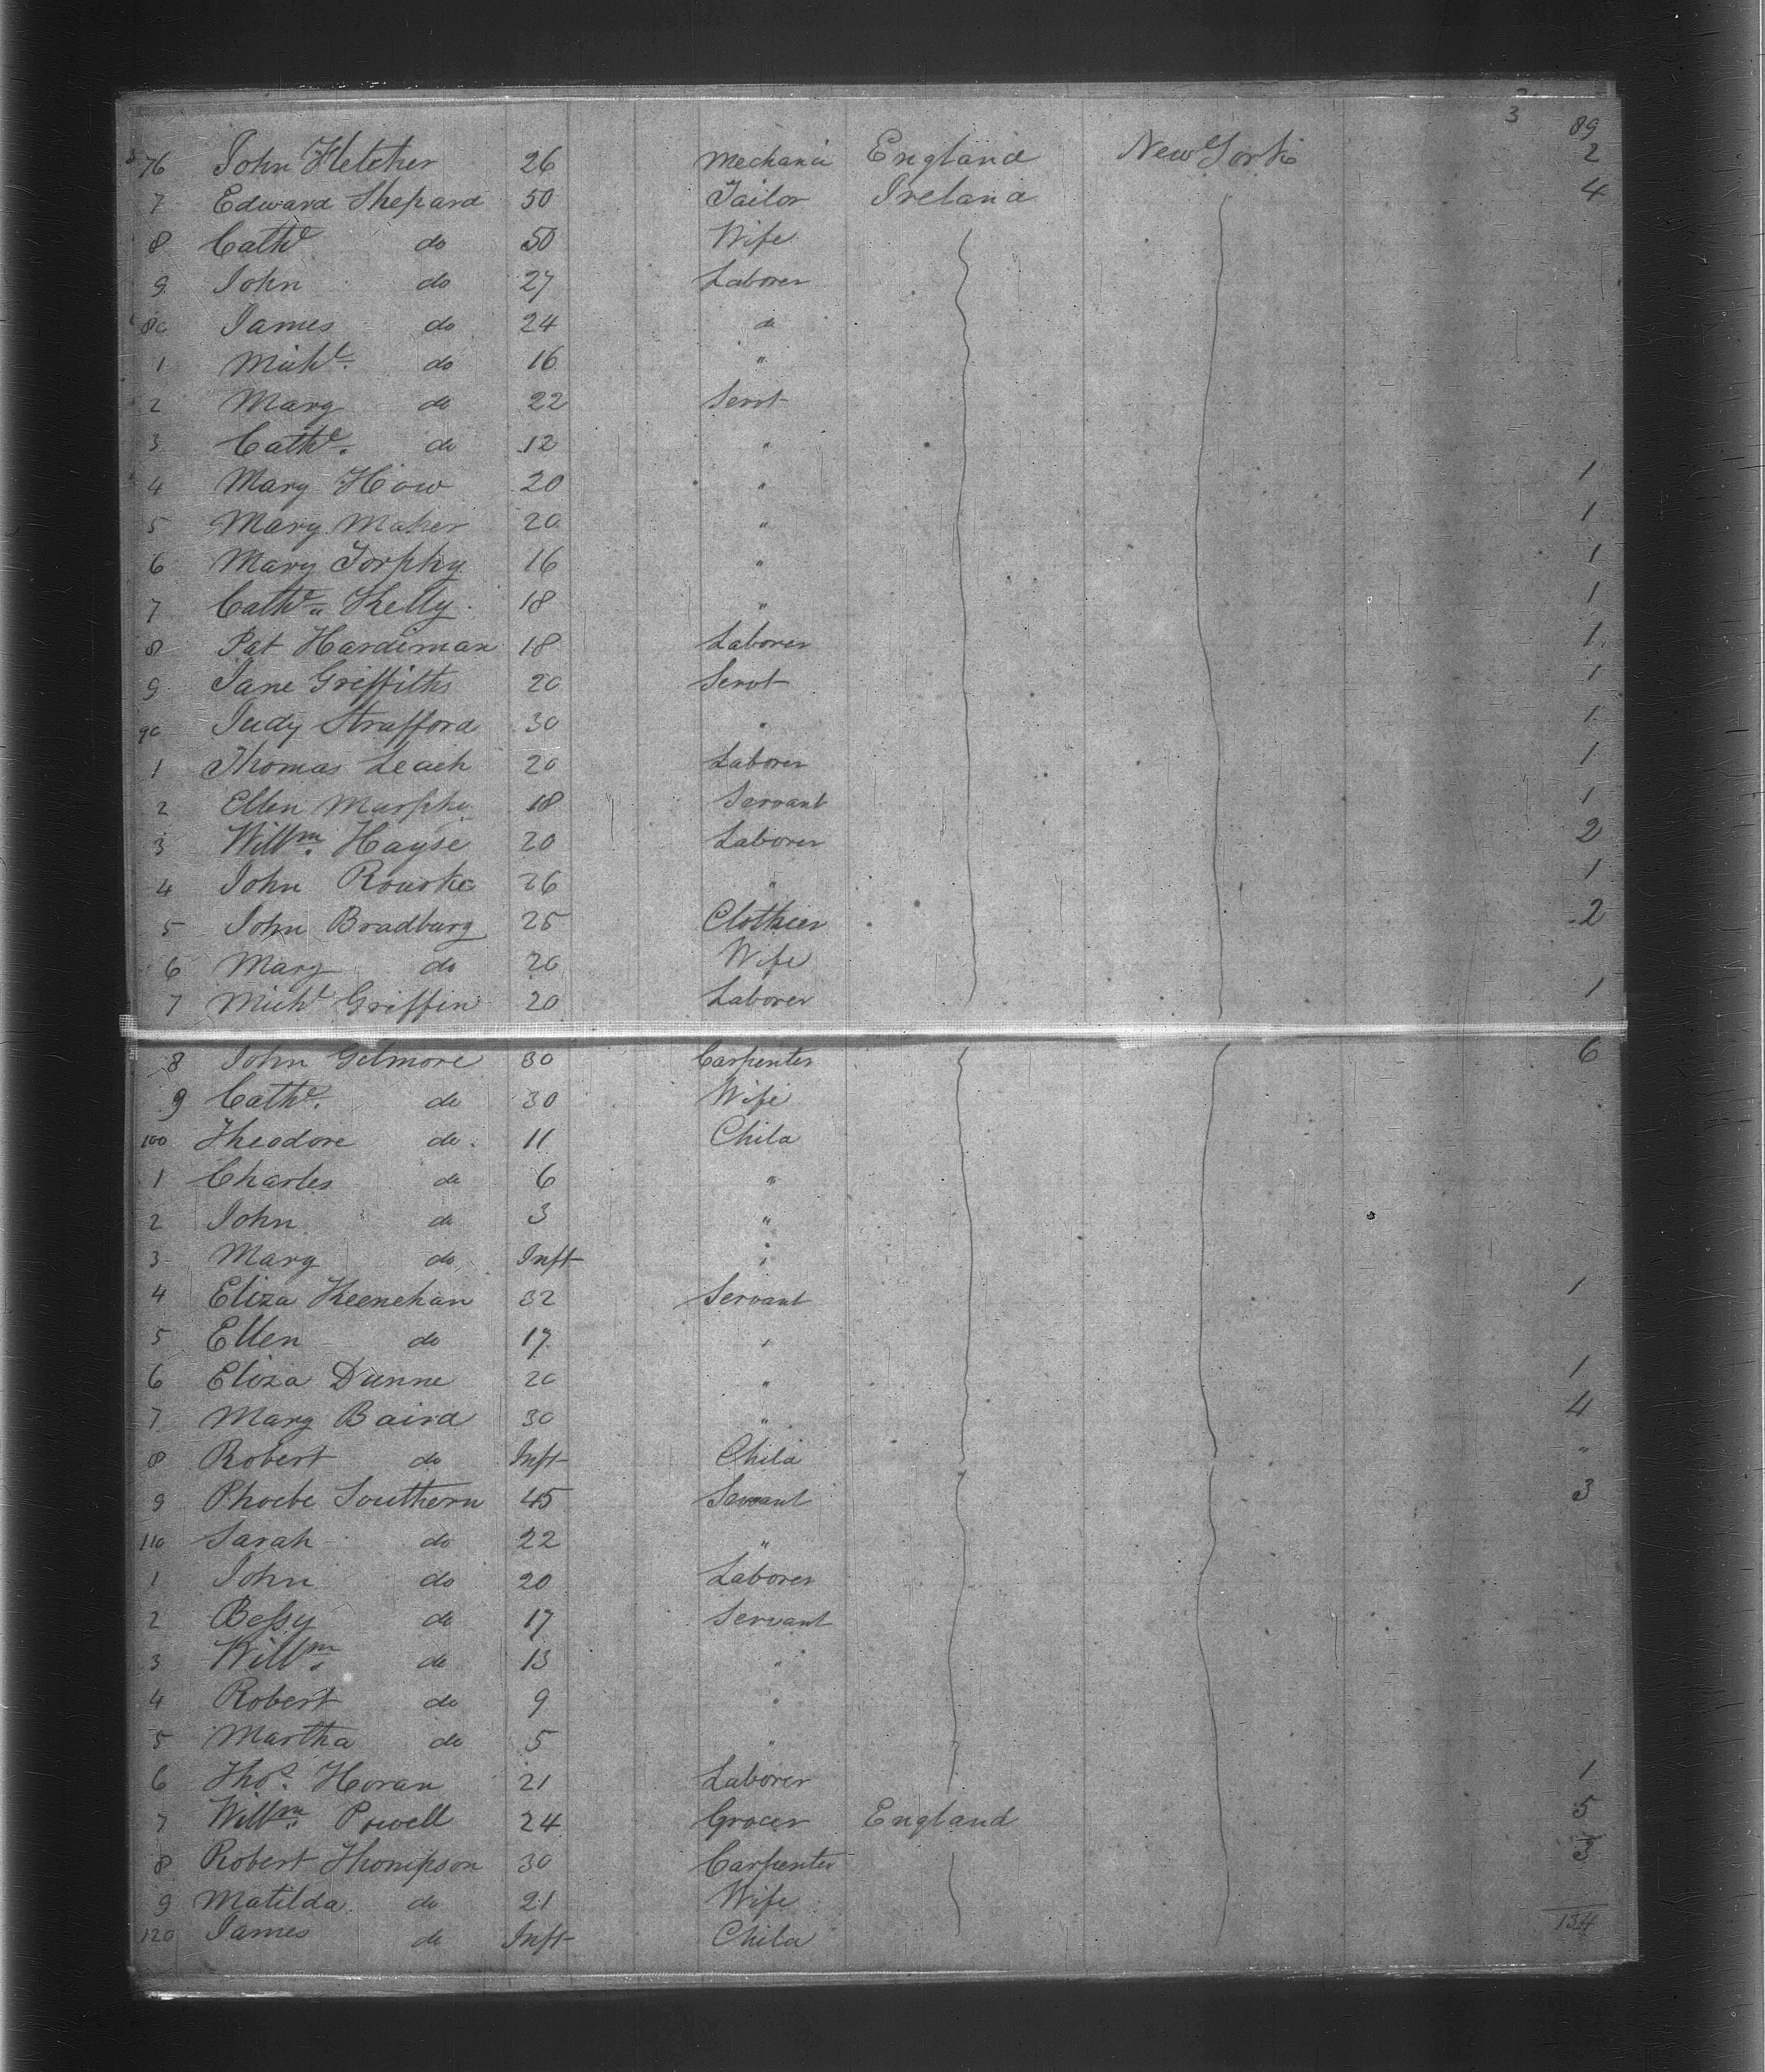 3 89
76 John Fletcher 26 Mechanic England New York 2
7 Edward Shepard 50 Tailor Ireland 4
8 Cathe do 50 Wife
9 John do 27 Laborer
80 James do 24 do
1 Michl. do 16 "
2 Marg do 22 Servt
3 Cathe. do 12 "
4 Mary How 20 " 1
5 Mary Maher 20 " 1
6 Mary Torphy 16 " 1
7 Cathe. Kelly 18 " 1
8 Pat Hardiman 18 Laborer 1
9 Jane Griffiths 20 Servt 1
90 Judy Strafford 30 " 1
1 Thomas Leach 20 Laborer 1
2 Ellen Murphy 18 Servant 1
3 Willm. Hayse 20 Laborer 2
4 John Rourke 26 " 1
5 John Bradbury 25 Clothier 2
6 Mary do 20 Wife
7 Michl Griffin 20 Laborer 1
8 John Gilmore 30 Carpenter 6
9 Cathe. do 30 Wife
100 Theodore do 11 Child
1 Charles do 6 "
2 John do 3 "
3 Mary do Inft "
4 Eliza Keenehan 32 Servant 1
5 Ellen do 17 "
6 Eliza Dunne 20 " 1
7 Mary Baird 30 " 4
8 Robert do Inft Child "
9 Phoebe Southern 45 Servant 3
110 Sarah do 22 "
1 John do 20 Laborer
2 Bessy do 17 Servant
3 Willm. do 13 "
4 Robert do 9 "
5 Martha do 5 "
6 Thos. Horan 21 Laborer 1
7 Willm. Powell 24 Grocer England 5
8 Robert Thompson 30 Carpenter 3
9 Matilda do 21 Wife
120 James do Inft Child 134